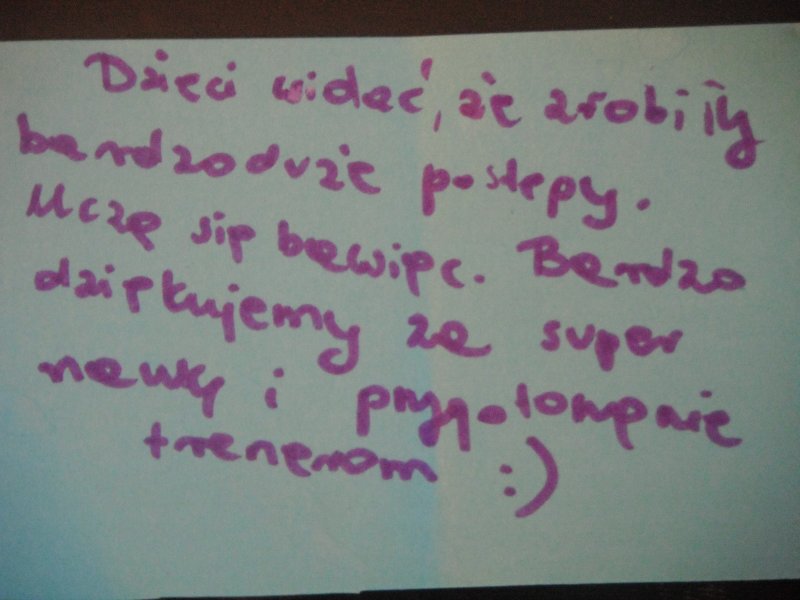 Dzieci widać, że zrobiły
bardzo duże postępy.
Uczą się bawiąc. Bardzo
dziękujemy za super
naukę i przygotowanie
trenerom :)